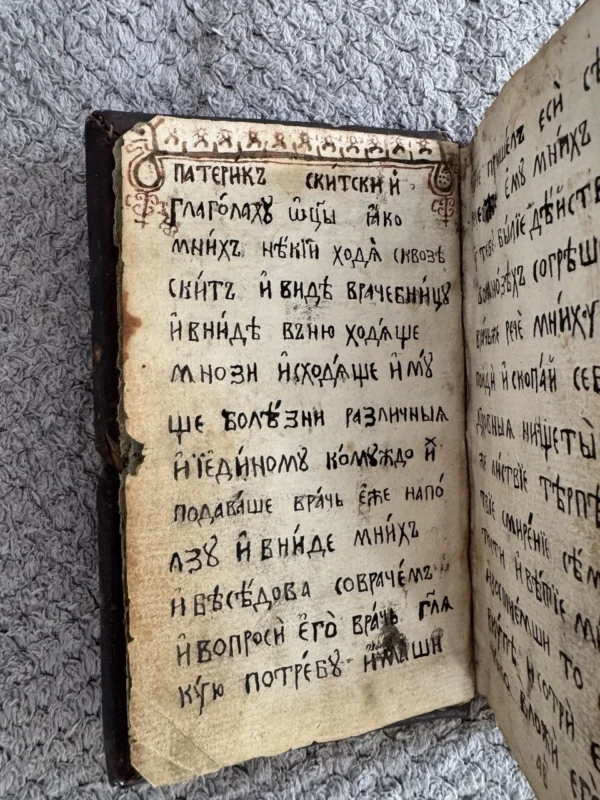 патерикъ скитскиѝ
глаголахꙋ ѿцы ꙗко
мни́хъ нѣкїѝ ходѧ̀ сквозѣ
скитъ ѝ видѣ врачебни́цꙋ
ѝ вни́дѣ въ ню ходѧ́ще
мнози ѝсходѧ́ще ѝмꙋ́
ще болѣзни различныѧ
ѝ їеди́номꙋ комꙋ́ждо и҆̀х
подава́ше врачь е҆́же напо́
лзꙋ ѝ вни́де мни́хъ
ѝ бѣсѣ́дова со враче́мъ
ѝ вопросѝ е҆го̀ вра́чь гл҃ѧ
кꙋ́ю потре́бꙋ ѝмаши
прише́лъ есѝ
е҆мꙋ̀ мни́хъ
бы́лїе дѣ́йств
мно́зѣхъ согрѣш
речѐ мни́хꙋ
ѝ ископа́й себ
нищеты̀
ли́ствїе тѣрпѣ
смире́нїе сѣм
ѝ вѣ́твїе
то
ѝ сотрѝ
вложѝ